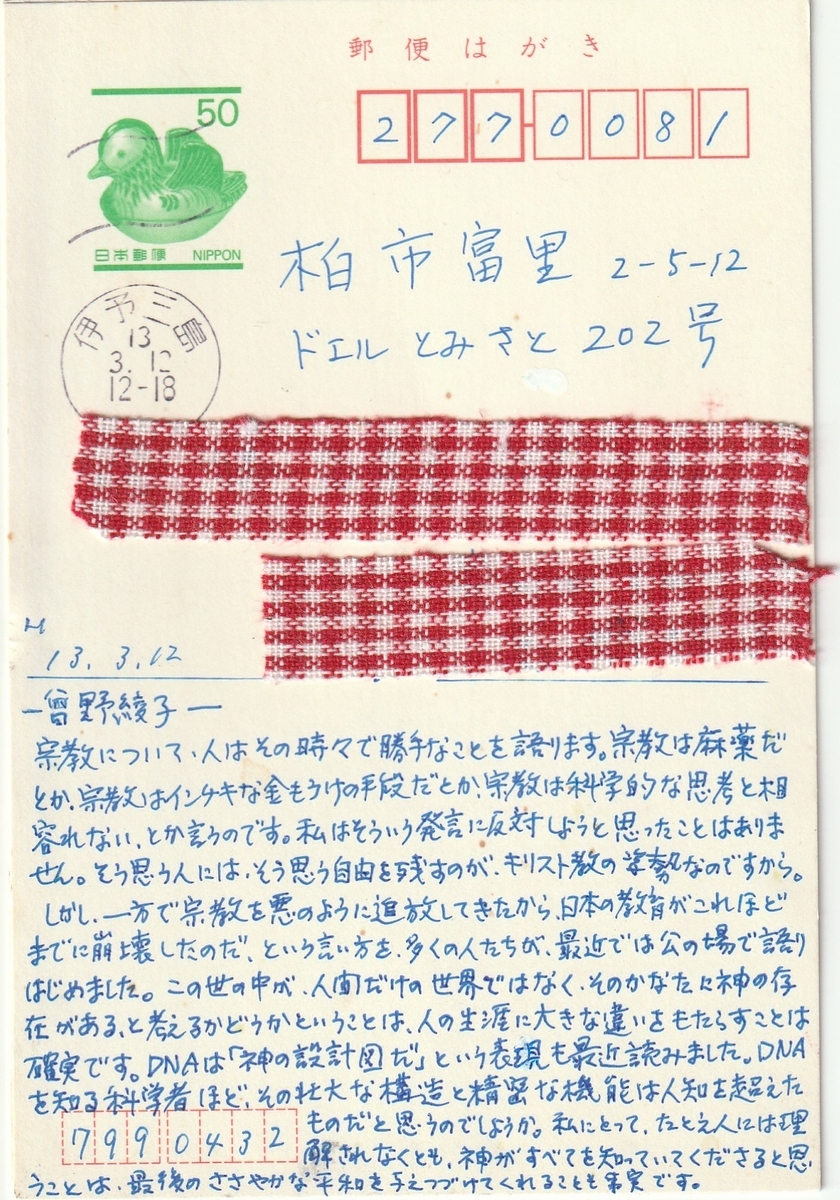 郵便はがき
50
日本郵便 NIPPON
277-0081
柏市富里 2-5-12
ドエルとみさと 202号
伊予三島
13
3. 12
12-18
13. 3. 12
―曾野綾子―
宗教について、人はその時々で勝手なことを語ります。宗教は麻薬だ
とか、宗教はインチキな金もうけの手段だとか、宗教は科学的な思考と相
容れない、とか言うのです。私はそういう発言に反対しようと思ったことはありま
せん。そう思う人には、そう思う自由を残すのが、キリスト教の姿勢なのですから。
しかし、一方で宗教を悪のように追放してきたから、日本の教育がこれほど
までに崩壊したのだ、という言い方を、多くの人たちが、最近では公の場で語り
はじめました。この世の中が、人間だけの世界ではなく、そのかなたに神の存
在がある、と考えるかどうかということは、人の生涯に大きな違いをもたらすことは
確実です。DNAは「神の設計図だ」という表現も最近読みました。DNA
を知る科学者ほど、その壮大な構造と精密な機能は人知を超えた
ものだと思うのでしょうか。私にとって、たとえ人には理
解されなくとも、神がすべてを知っていてくださると思
うことは、最後のささやかな平和を与えつづけてくれることも事実です。
7990432